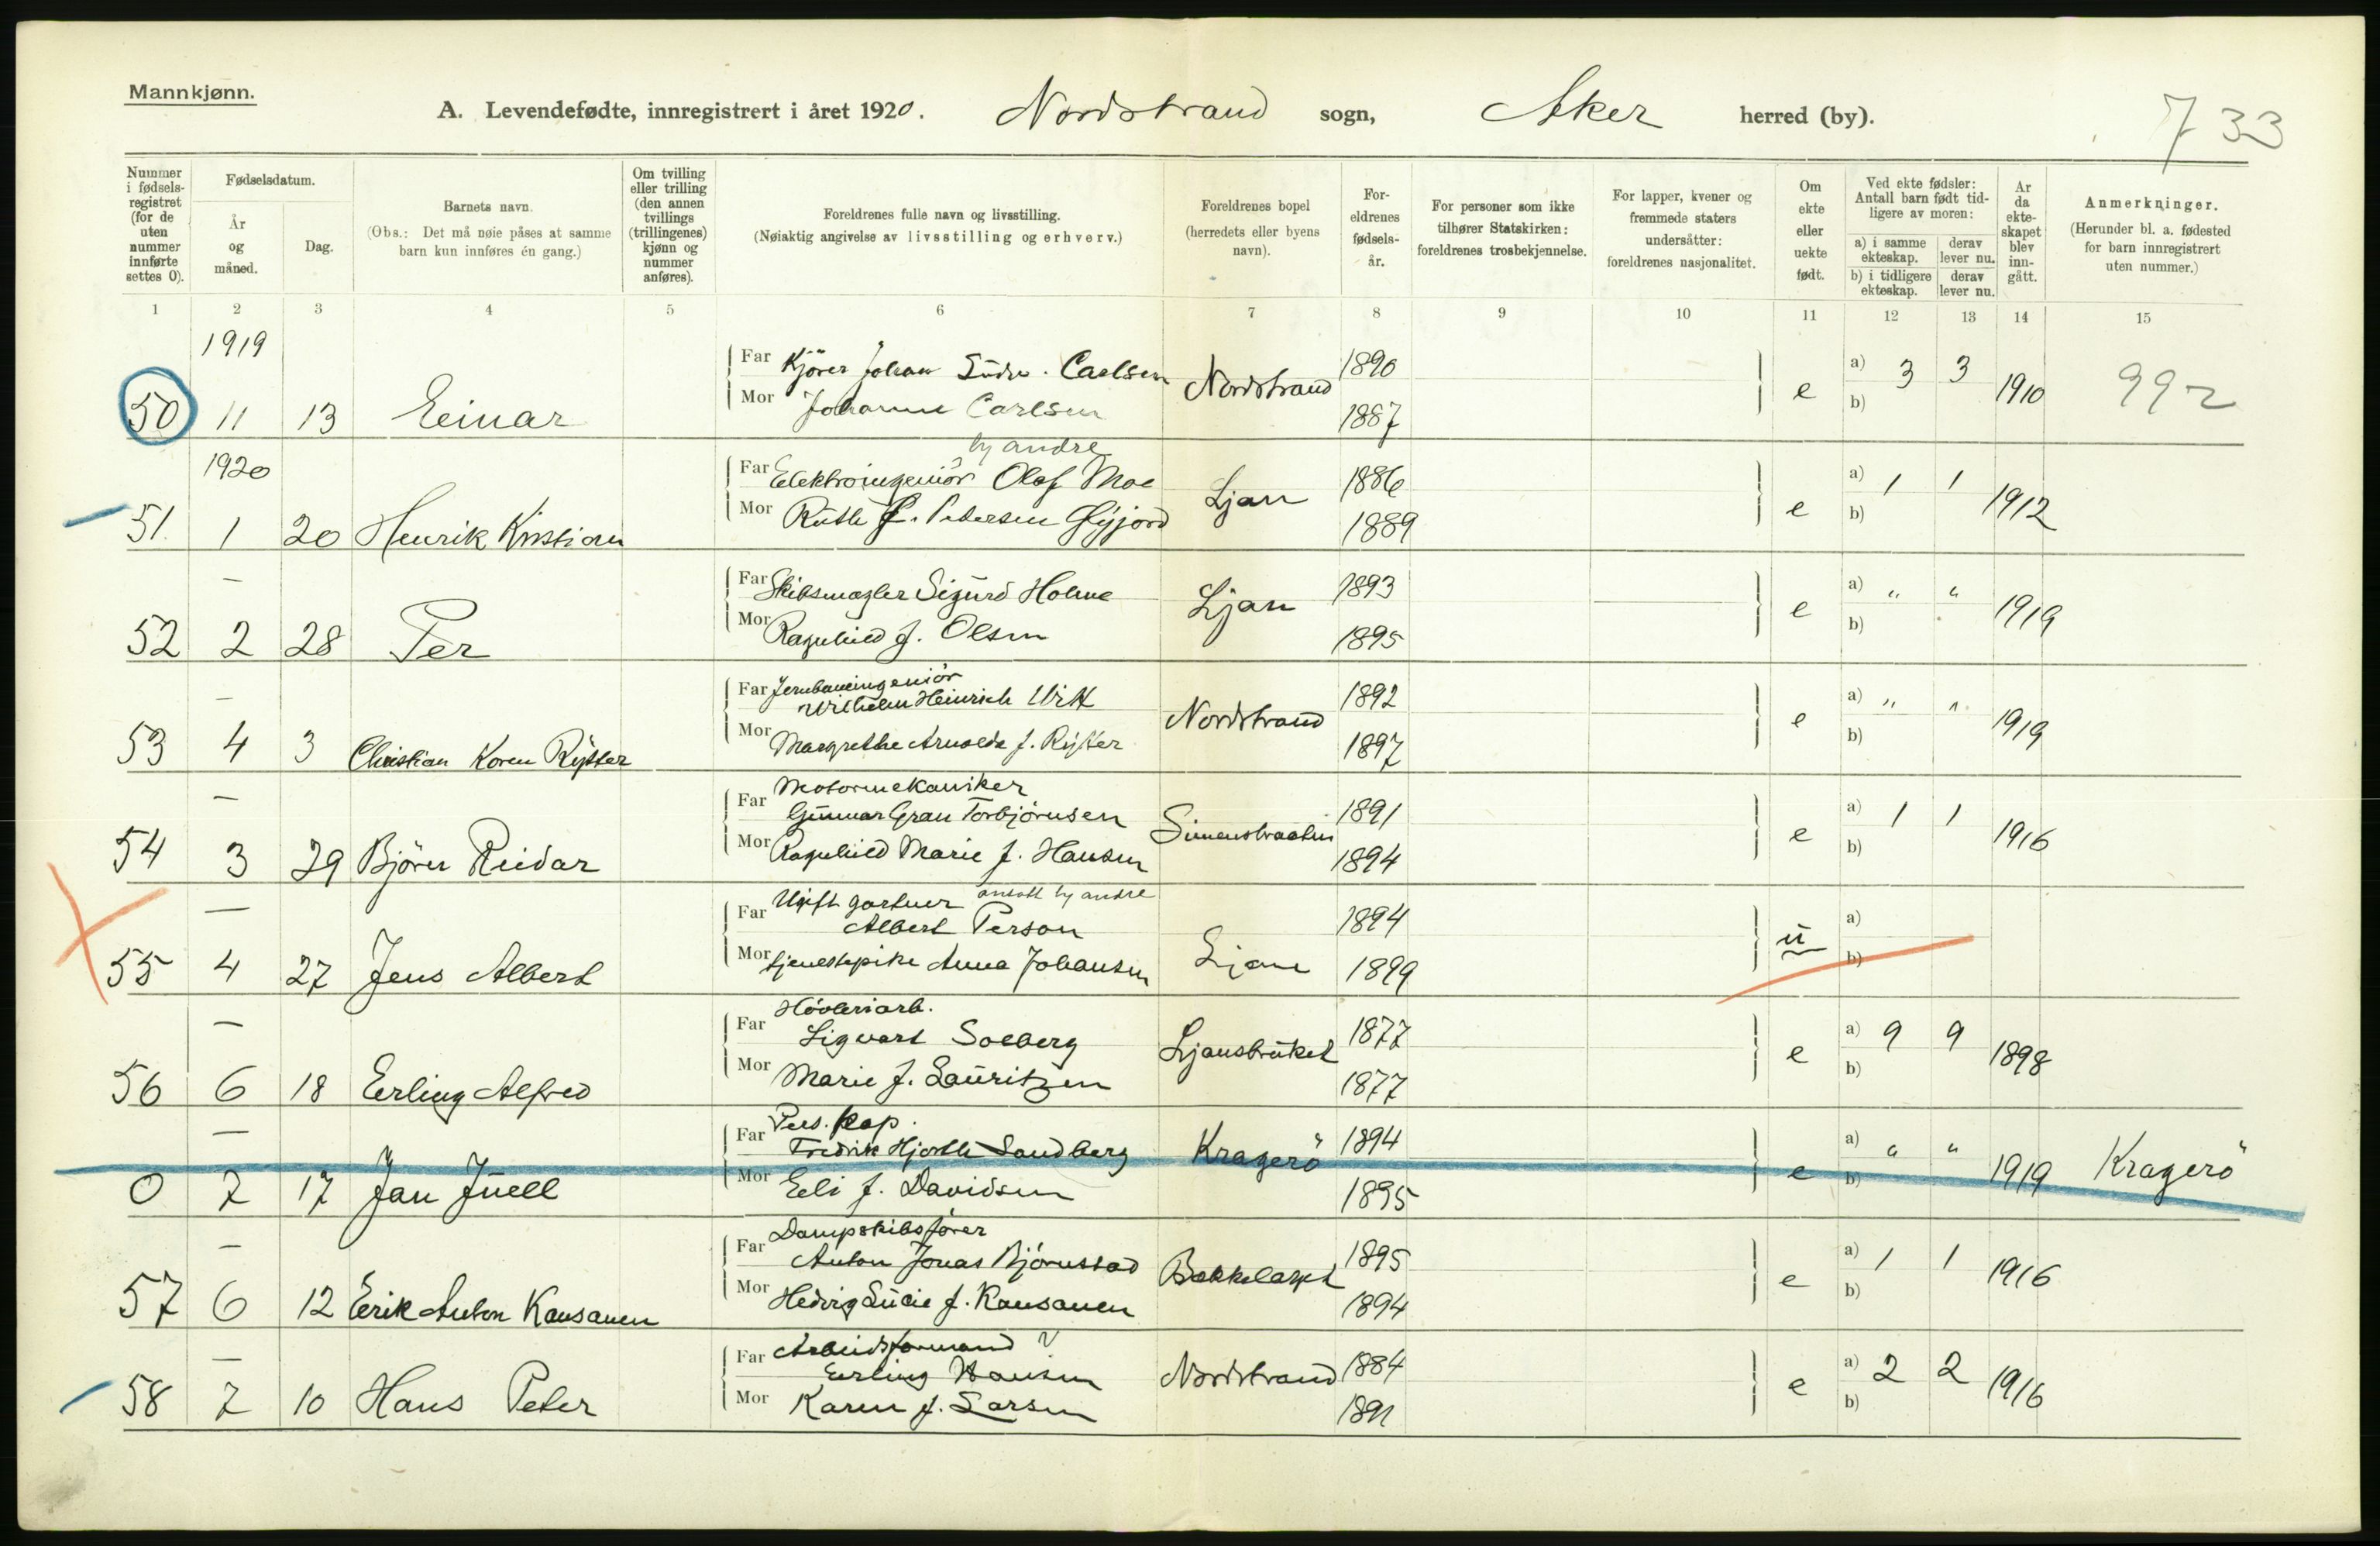 Mannkjønn.
A. Levendefødte, innregistrert i året 1920. Nordstrand sogn, Aker herred (by). 733
Nummer i fødselsregistret (for de uten nummer innførte settes 0).
Fødselsdatum.
År og måned.
Dag.
Barnets navn.
(Obs.: Det må nøie påses at samme barn kun innføres én gang.)
Om tvilling eller trilling (den annen tvillings (trillingenes) kjønn og nummer anføres).
Foreldrenes fulle navn og livsstilling.
(Nøiaktig angivelse av livsstilling og erhverv.)
Foreldrenes bopel (herredets eller byens navn).
Foreldrenes fødselsår.
For personer som ikke tilhører Statskirken: foreldrenes trosbekjennelse.
For lapper, kvener og fremmede staters undersåtter: foreldrenes nasjonalitet.
Om ekte eller uekte født.
Ved ekte fødsler: Antall barn født tidligere av moren:
a) i samme ekteskap. derav lever nu.
b) i tidligere ekteskap. derav lever nu.
Ar da ekteskapet blev inngått.
Anmerkninger.
(Herunder bl. a. fødested for barn innregistrert uten nummer.)
1 2 3 4 5 6 7 8 9 10 11 12 13 14 15
1919
Far Kjörer Johan Carlsen 1890 a) 3 3
50 11 13 Einar Mor Johanne Carlsen Nordstrand 1887 e b) 1910 992
1920 hj andre
Far Elektroingeniör Olaf Moe 1886 a) 1 1
51. 1 20 Henrik Kristian Mor Ruth f. Petersen Ljan 1889 e b) 1912
—
Far Skibsmægler Sigurd Holme 1893 a) " "
52 2 28 Per Mor Ragnhild f. Olsen Ljan 1895 e b) 1919
—
Far Jernbaneingeniör
Wilhelm Heinrich Witt 1892 a) " "
53 4 3 Christian Koren Rytter Mor Margrethe Arnolda f. Rytter Nordstrand 1897 e b) 1919
—
Motormekaniker
Far Gunnar Gran Torbjörnsen 1891 a) 1 1
54 3 29 Björn Reidar Mor Ragnhild Marie f. Hansen Simenstraaten 1894 e b) 1916
—
Ugift gartner ansatt hj andre
Far Albert Person 1894 a)
55 4 27 Jens Albert Mor tjenestepike Anna Johansen Ljan 1899 u b)
—
Hövleriarb.
Far Sigvart Solberg 1877 a) 9 9
56 6 18 Erling Alfred Mor Marie f. Lauritzen Ljansbruket 1877 e b) 1898
—
Far Fredrik Hjorth Sandberg Kragerö 1894 a) " "
0 7 17 Jan Juell Mor Eli f. Davidsen 1895 e b) 1919 Kragerö
—
Dampskibsförer
Far Anton Jonas Björnstad 1895 a) 1 1
57 6 12 Erik Anton Kausanen Mor Hedvig Lucie f. Kausanen Bekkelaget 1894 e b) 1916
—
Arbeidsformand ?
Far Erling Hansen 1884 a) 2 2
58 7 10 Hans Peter Mor Karen f. Larsen Nordstrand 1891 e b) 1916